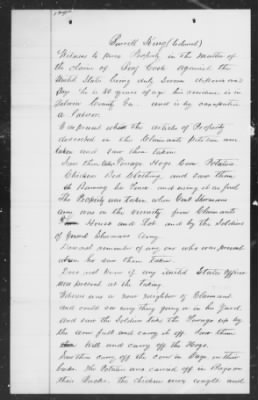 Burrell King (Colored)
Witness to prove Property in the matter of
the claim of Cook Against the
United States being duly sworn deposes and
Say he is 40 years of age his residence is in
County Ga. and is by occupation
a Laborer.
was present when the articles of Property
described in the Claimants petition were
taken and saw them taken.
Saw them take Forage Hogs Corn Potatoes
Chicken Bed Clothing, and saw them
Burning his Fence and using it as fuel
The Property was taken when Genl Sherman
Army was in the vicinity from Claimants
House and Lot and by the Soldiers
of General Shermans Army
Does not remember of any one who was present
when he saw them taken.
Does not know of any United States Officer
was present at the taking.
Witness was a near neighbor of Claimant
and could see every thing going on in his Yard
And saw the Soldiers take the Forage up by
the arm full and carry it off. Saw them
Kill and carry off the Hogs.
Saw them carry off the corn in Bags on their
backs. The Potatoes was carried off in Bags on
their Backs. the chicken were caught and